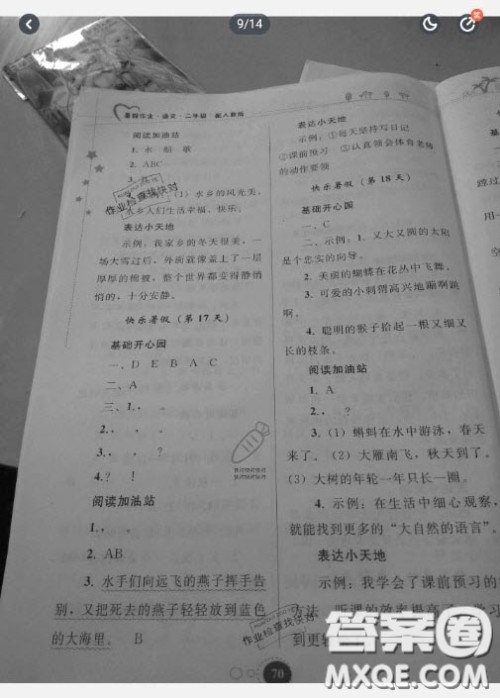 9/14
暑假作业·语文·二年级 配人教版
阅读加油站
1. 水 船 歌
2. ABC
3.
(1)水乡的风光美。
水乡人们生活幸福、快乐。
表达小天地
示例:我家乡的冬天很美,一
场大雪过后,外面就像盖上了一层
厚厚的棉被,整个世界都变得静悄
悄的,十分安静。
快乐暑假(第17天)
基础开心园
一、D E B A C
二、A
三、1., 。
2., 。
3., , ?
4.? !
阅读加油站
1., 。
2. AB
3. 水手们向远飞的燕子挥手告
别,又把死去的燕子轻轻放到蓝色
的大海里。 B
表达小天地
示例:①每天坚持写日记
②课前预习 ③认真领会体育老师
的动作要领
快乐暑假(第18天)
基础开心园
一、C
二、示例:1. 又大又圆的太阳
是个忠实的向导。
2. 美丽的蝴蝶在花丛中飞舞。
3. 可爱的小刺猬高兴地蹦啊跳
啊。
4. 聪明的猴子拾起一根又细又
长的枝条。
阅读加油站
1. A
2., ?
3.(1)蝌蚪在水中游泳,春天
来了。(2)大雁南飞,秋天到了。
(3)大树的年轮一年只长一圈。
4. 示例:在生活中细心观察,
就能找到更多的“大自然的语言”。
表达小天地
示例:我学会了课前预习的
方法,听课的效率提高了
到更
70
作业检查找快对
作业检查找快对
答案圈
MXQE.COM